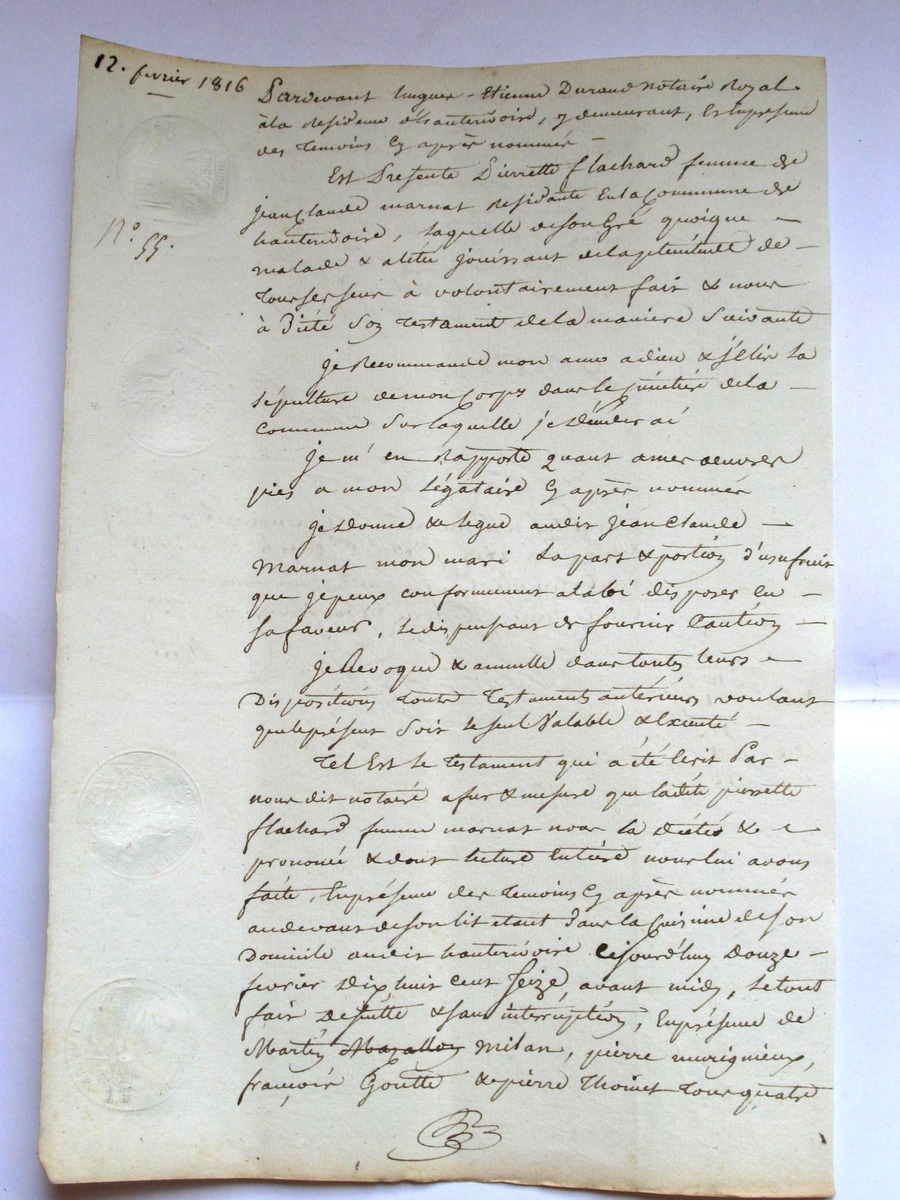 12. fevrier 1816
N.o 55.
Pardevant hugues-Etienne Durand Notaire Royal
à la Residence d'hauterivoire, y demeurant, En presence
des temoins Cy après nommés
Est Presente Pierrette flachard femme de
jean Claude marnat Residante En la Commune de
hauterivoire, laquelle de son Gré quoique
malade & alitée jouissant de la plenitude de
tous ses sens à volontairement fait & nous
à Dicté Son testament de la maniere Suivante
je Recommande mon ame a dieu & j'Elis la
sépulture de mon Corps dans le Cimétière de la
commune Sur laquelle je déceder ai
je m'en Rapporte quant a mes oeuvres
pies a mon Légataire Cy après nommés
je donne & legue audit jean Claude
Marnat mon mari La part & portion D'usufruit
que je peux conformement a la loi disposer En
sa faveur, le dispensant de fournir Caution
je Revoque & annulle dans toutes leurs
Dispositions toutes testaments antérieurs voulant
que le présent Soit le seul Valable & Executé
Tel Est le testament qui a été Ecrit Par
nous dit notaire a fur & mesure que ladite pierrette
flachard femme marnat nous la dicteé &
prononcé & dont lecture Entière nous lui avons
faite, En présence des temoins Cy après nommés
au devant de son lit etant Dans la Cuisine de son
Domicile audit hauterivoire Cejourd'huy Douze
fevrier dix huit cent Seize, avant midy, le tout
fait de suitte & sans interruption, En présence de
Martin Mazallon milan, pierre murigneux,
françois Goutte & pierre Thoinet tous quatre